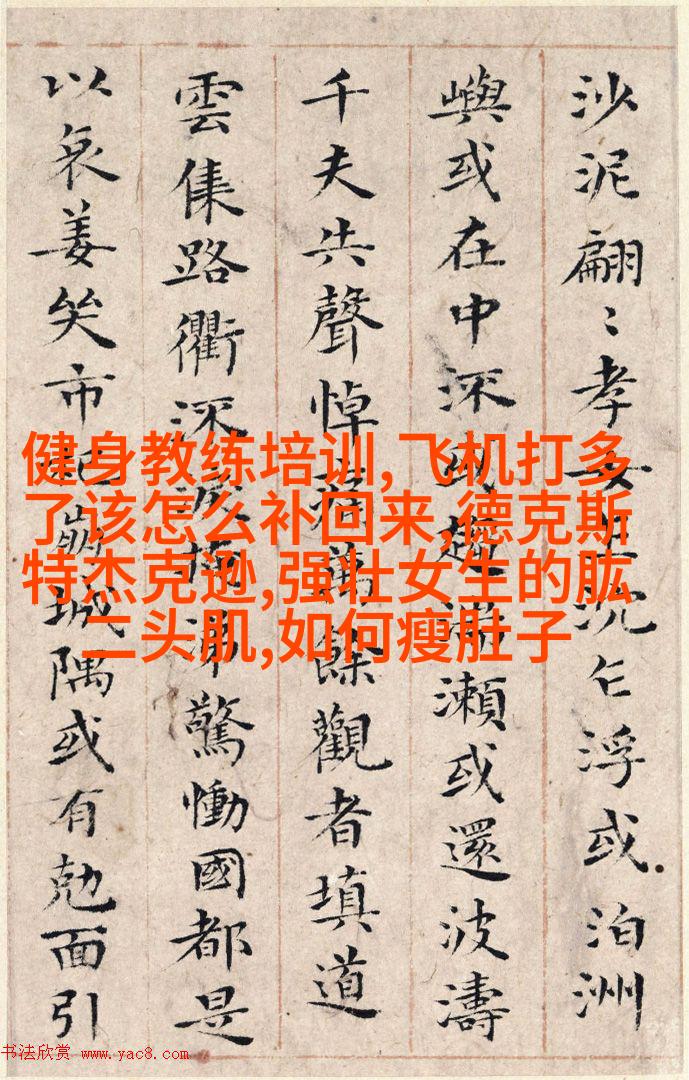 沙泥翩〻孝女乍沉乍浮或泊洲
嶼或在中流或趨湍瀨或還波濤
千夫共聲悼痛萬餘觀者填道
雲集路衢流淚掩涕驚慟國都是
以哀姜哭市杞崩城隅或有剋面引
健身教练培训,飞机打多
了该怎么补回来,德克斯
特杰克逊,强壮女生的肱
二头肌,如何瘦肚子
书法欣赏 www.yac8.com